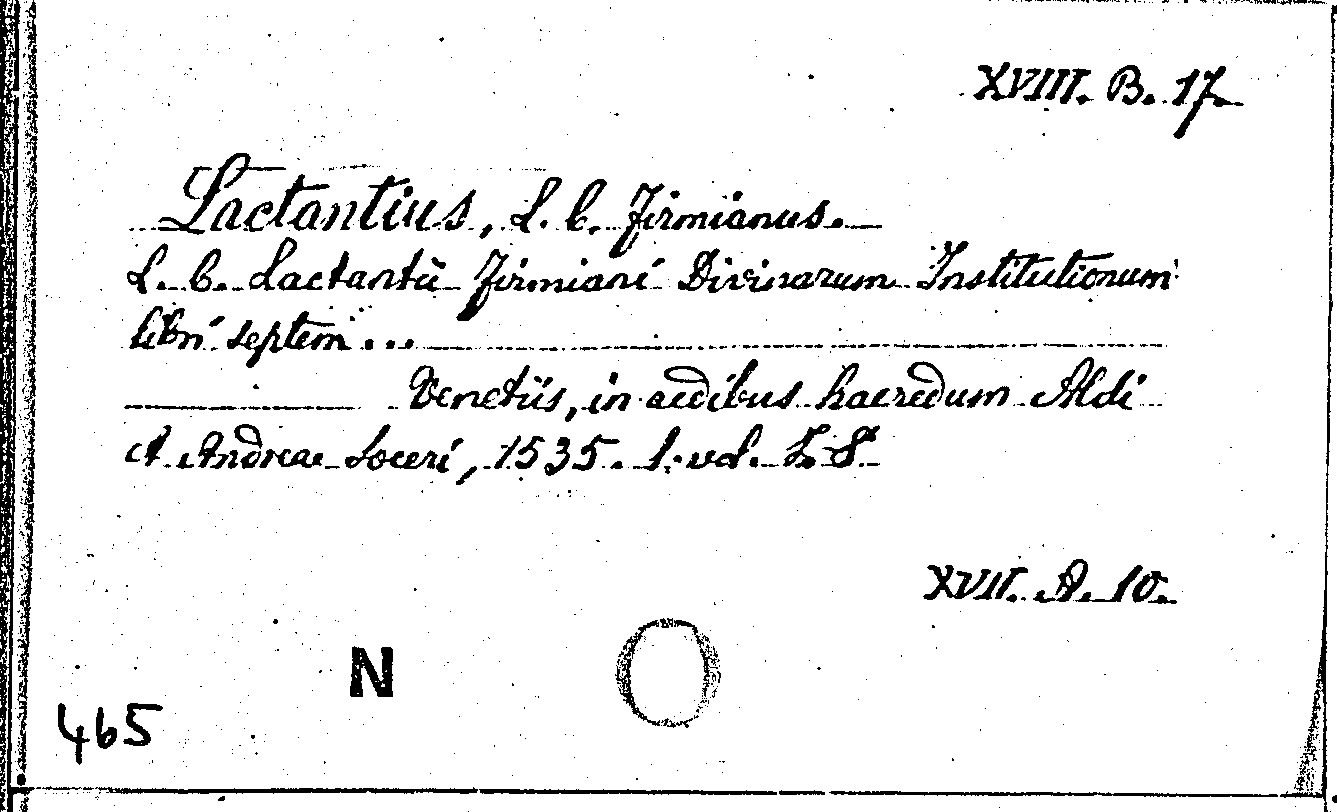 XVIII. B. 17.
Lactantius, L. C. Firmianus.
L. C. Lactantii Firmiani Divinarum Institutionum
libri septem...
Venetiis, in aedibus haeredum Aldi
A. Andreae Soceri, 1535. 1. vol. 8
XVII. A. 10.
N
465